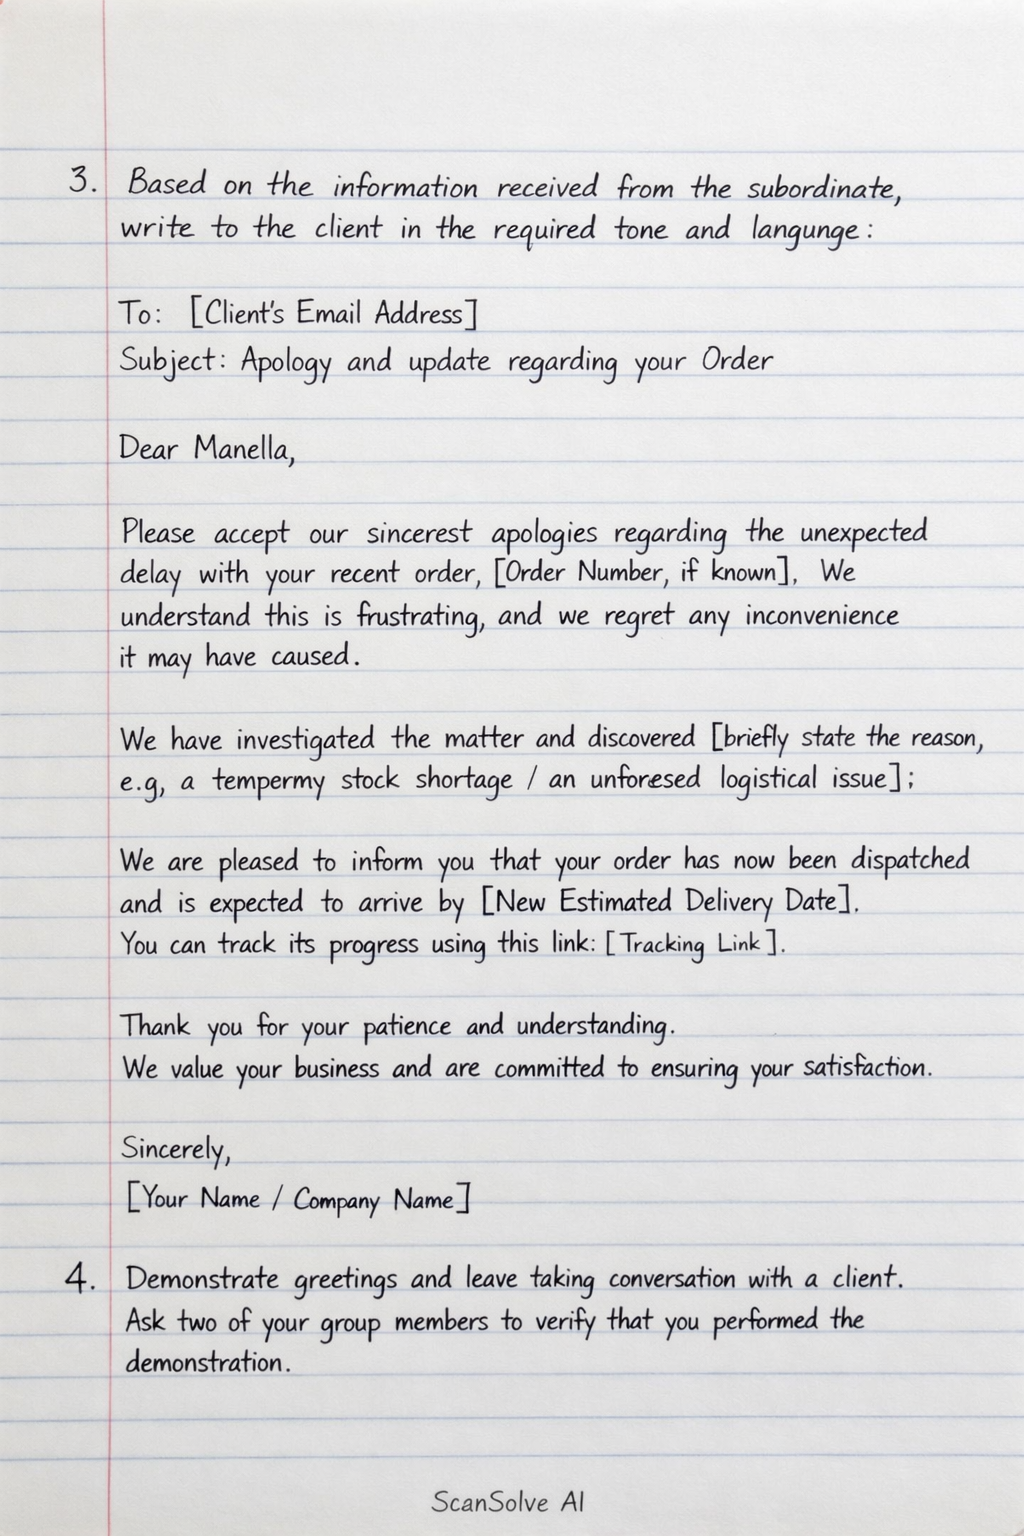 3. Based on the information received from the subordinate,
write to the client in the required tone and langunge:
To: [Client's Email Address]
Subject: Apology and update regarding your Order
Dear Manella,
Please accept our sincerest apologies regarding the unexpected
delay with your recent order, [Order Number, if known], We
understand this is frustrating, and we regret any inconvenience
it may have caused.
We have investigated the matter and discovered [briefly state the reason,
e.g, a tempermy stock shortage / an unforesed logistical issue];
We are pleased to inform you that your order has now been dispatched
and is expected to arrive by [New Estimated Delivery Date].
You can track its progress using this link: [Tracking Link].
Thank you for your patience and understanding.
We value your business and are committed to ensuring your satisfaction.
Sincerely,
[Your Name / Company Name]
4. Demonstrate greetings and leave taking conversation with a client.
Ask two of your group members to verify that you performed the
demonstration.
ScanSolve AI